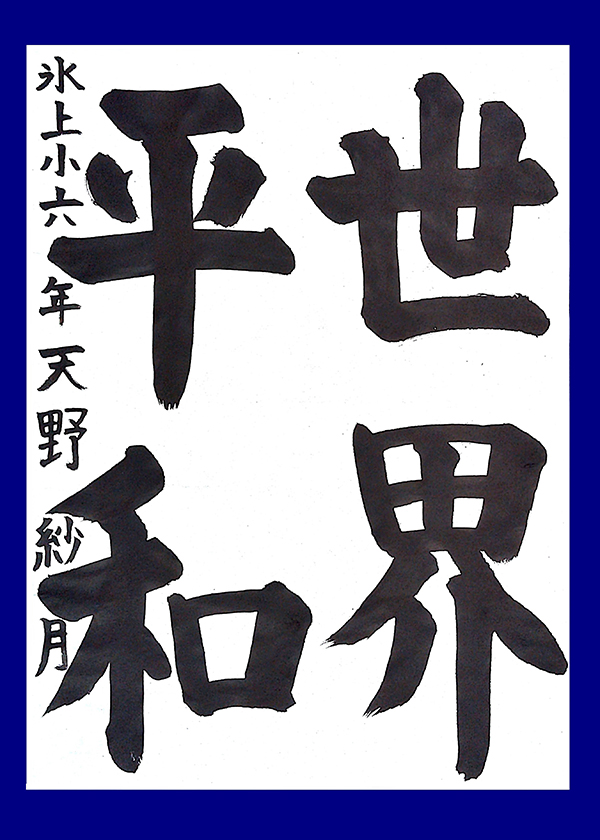 世界
平和
氷上小六年天野紗月